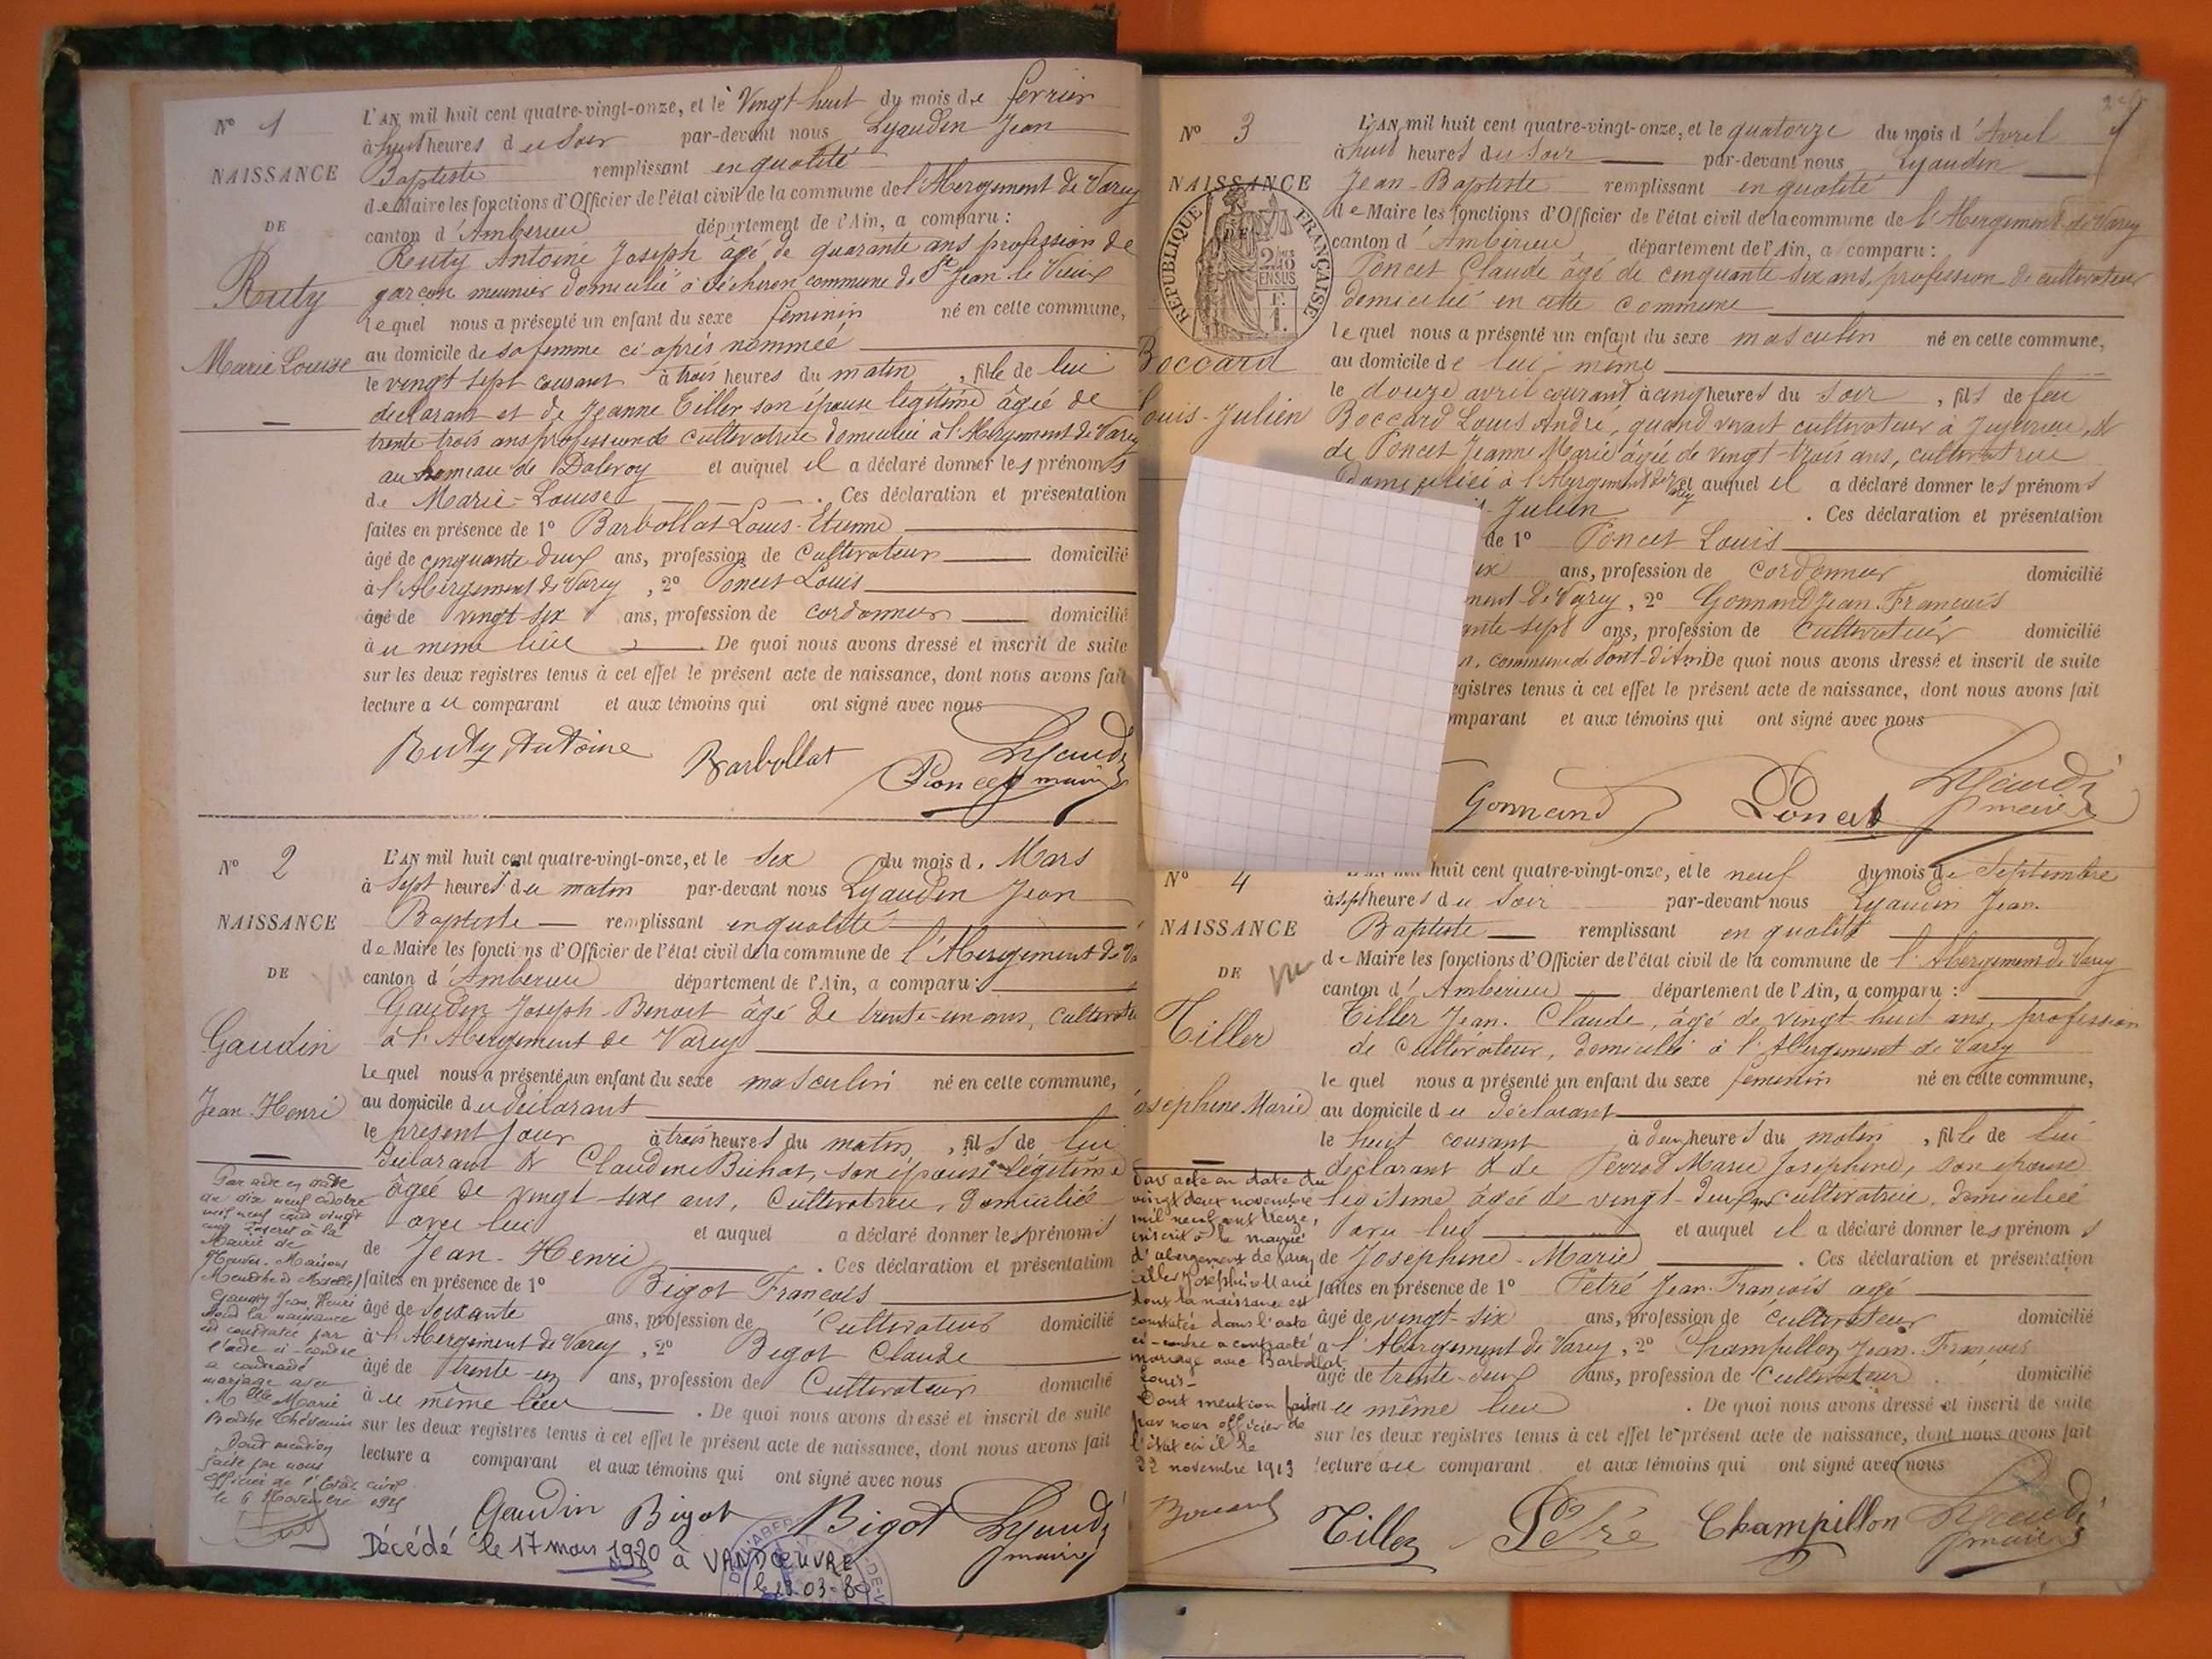 N° 1
NAISSANCE
DE
Reuty
Marie Louise
L'AN mil huit cent quatre-vingt-onze, et le Vingt-huit du mois de fevrier
à huit heures du soir par-devant nous Lyaudin Jean
Baptiste remplissant en qualité
de Maire les fonctions d'Officier de l'état civil de la commune de l'Abergement de Varey
canton d'Amberieu département de l'Ain, a comparu :
Reuty Antoine Joseph âgé de quarante ans profession de
garçon meunier domicilié à commune de St Jean le Vieux
lequel nous a présenté un enfant du sexe feminin né en cette commune,
au domicile de sa femme ci après nommée
le vingt sept courant à trois heures du matin, fille de lui
declarant et de Jeanne Tiller son épouse légitime âgée de
trente trois ans profession de cultivatrice domiciliée à l'Abergement de Varey
au hameau de Dalivoy et auquel il a déclaré donner les prénoms
de Marie-Louise. Ces déclaration et présentation
faites en présence de 1° Barbollat Louis-Etienne
âgé de cinquante deux ans, profession de Cultivateur domicilié
à l'Abergement de Varey, 2° Poncet Louis
âgé de vingt-six ans, profession de cordonnier domicilié
au même lieu. De quoi nous avons dressé et inscrit de suite
sur les deux registres tenus à cet effet le présent acte de naissance, dont nous avons fait
lecture au comparant et aux témoins qui ont signé avec nous
Reuty Antoine Barbollat Lyaudin
Poncet maire
N° 2
NAISSANCE
DE
Vu
Gaudin
Jean-Henri
L'AN mil huit cent quatre-vingt-onze, et le six du mois d. Mars
à sept heures du matin par-devant nous Lyaudin Jean
Baptiste remplissant en qualité
de Maire les fonctions d'Officier de l'état civil de la commune de l'Abergement de Va
canton d'Amberieu département de l'Ain, a comparu :
Gaudin Joseph-Benoit âgé de trente-un ans, cultivate
à l'Abergement de Varey
lequel nous a présenté un enfant du sexe masculin né en cette commune,
au domicile du déclarant
le present jour à trois heures du matin, fils de lui
déclarant & Claudine Bichat, son épouse légitime
âgée de vingt-six ans, Cultivatrice, domiciliée
avec lui et auquel a déclaré donner les prénoms
de Jean-Henri. Ces déclaration et présentation
faites en présence de 1° Bigot François
âgé de soixante ans, profession de Cultivateur domicilié
à l'Abergement de Varey, 2° Bigot Claude
âgé de trente-un ans, profession de Cultivateur domicilié
au même lieu. De quoi nous avons dressé et inscrit de suite
sur les deux registres tenus à cet effet le présent acte de naissance, dont nous avons fait
lecture a comparant et aux témoins qui ont signé avec nous
Gaudin Bigot Bigot Lyaudin
maire
Par acte en date
du dix neuf octobre
mil neuf cent vingt
cinq inscrit à la
Mairie de
(Meurthe et Moselle)
Gaudin Jean Henri
dont la naissance
est constatée par
l'acte ci-contre
a contracté
mariage avec
Melle Marie
Berthe Thévenin
Dont mention
faite par nous
officier de l'Etat civil
le 6 Novembre 1925
Décédé le 17 mars 1980 à VANDŒUVRE
03-80
N° 3
NAISSANCE
RÉPUBLIQUE FRANÇAISE
2/10 EN SUS
Boccard
Louis-Julien
L'AN mil huit cent quatre-vingt-onze, et le quatorze du mois d'Avril
à huit heures du soir par-devant nous Lyaudin
Jean-Baptiste remplissant en qualité
de Maire les fonctions d'Officier de l'état civil de la commune de l'Abergement de Varey
canton d'Ambérieu, département de l'Ain, a comparu :
Poncet Claude âgé de cinquante-six ans, profession de cultivateur
domicilié en cette commune
lequel nous a présenté un enfant du sexe masculin né en cette commune,
au domicile de lui-même
le douze avril courant à cinq heures du soir, fils de feu
Boccard Louis André, quand vivait cultivateur à Jujurieux, &
de Poncet Jeanne Marie âgée de vingt-trois ans, cultivatrice
domiciliée à l'Abergement de Varey et auquel il a déclaré donner les prénoms
Julien. Ces déclaration et présentation
de 1° Poncet Louis
ix ans, profession de cordonnier domicilié
ment de Varey, 2° Gonnand Jean-François
ante-sept ans, profession de Cultivateur domicilié
n, commune de Pont-d'Ain De quoi nous avons dressé et inscrit de suite
egistres tenus à cet effet le présent acte de naissance, dont nous avons fait
mparant et aux témoins qui ont signé avec nous
Gonnand Poncet Lyaudin
maire
N° 4
NAISSANCE
DE
Vu
Tiller
Joséphine Marie
huit cent quatre-vingt-onze, et le neuf du mois de Septembre
à sept heures du soir par-devant nous Lyaudin Jean
Baptiste remplissant en qualité
de Maire les fonctions d'Officier de l'état civil de la commune de l'Abergement de Varey
canton d'Ambérieu département de l'Ain, a comparu :
Tiller Jean-Claude, âgé de vingt-huit ans, profession
de Cultivateur, domicilié à l'Abergement de Varey
lequel nous a présenté un enfant du sexe feminin né en cette commune,
au domicile du déclarant
le huit courant à deux heures du matin, fille de lui
déclarant & de Perrod Marie Joséphine, son épouse
légitime âgée de vingt-deux ans cultivatrice, domiciliée
avec lui et auquel il a déclaré donner les prénoms
de Joséphine-Marie. Ces déclaration et présentation
faites en présence de 1° Petré Jean-François agé
âgé de vingt-six ans, profession de cultivateur domicilié
à l'Abergement de Varey, 2° Champillon Jean-François
âgé de trente-deux ans, profession de Cultivateur domicilié
au même lieu. De quoi nous avons dressé et inscrit de suite
sur les deux registres tenus à cet effet le présent acte de naissance, dont nous avons fait
lecture au comparant et aux témoins qui ont signé avec nous
Tiller Petré Champillon Lyaudin
maire
Par acte en date du
vingt deux novembre
mil neuf cent treize,
inscrit à la mairie
d'abergement de Varey
Tiller Joséphine Marie
dont la naissance est
constatée dans l'acte
ci-contre a contracté
mariage avec Barbollat
Louis-
Dont mention faite
par nous officier de
l'état civil le
22 novembre 1913